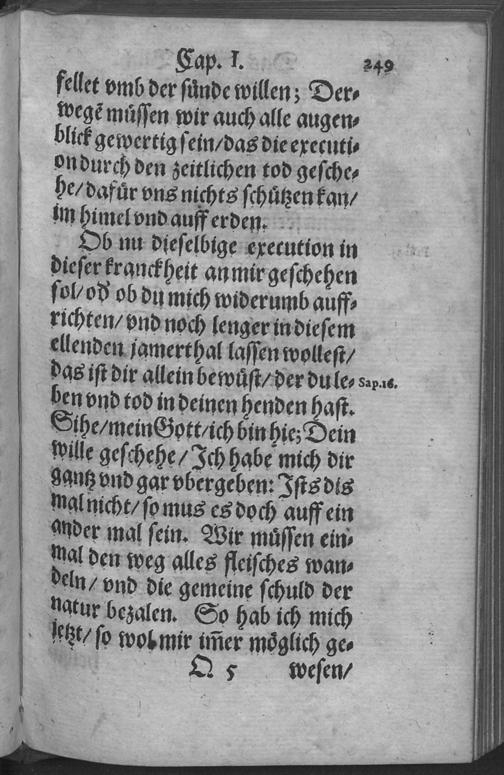 Cap. I. 249
fellet vmb der sünde willen; Der⸗
wegē müssen wir auch alle augen⸗
blick gewertig sein/das die executi⸗
on durch den zeitlichen tod gesche⸗
he/dafür vns nichts schützen kan/
im himel vnd auff erden.
Ob nu dieselbige execution in
dieser kranckheit an mir geschehen
sol/od̄ ob du mich widerumb auff⸗
richten/vnd noch lenger in diesem
ellenden jamerthal lassen wollest/
das ist dir allein bewüst/der du le⸗ Sap.16.
ben vnd tod in deinen henden hast.
Sihe/mein Gott/ich bin hie; Dein
wille geschehe/Ich habe mich dir
gantz vnd gar vbergeben: Ists dis
mal nicht/so mus es doch auff ein
ander mal sein. Wir müssen ein⸗
mal den weg alles fleisches wan⸗
deln/vnd die gemeine schuld der
natur bezalen. So hab ich mich
jetzt/so wol mir im̄er möglich ge⸗
Q 5 wesen/